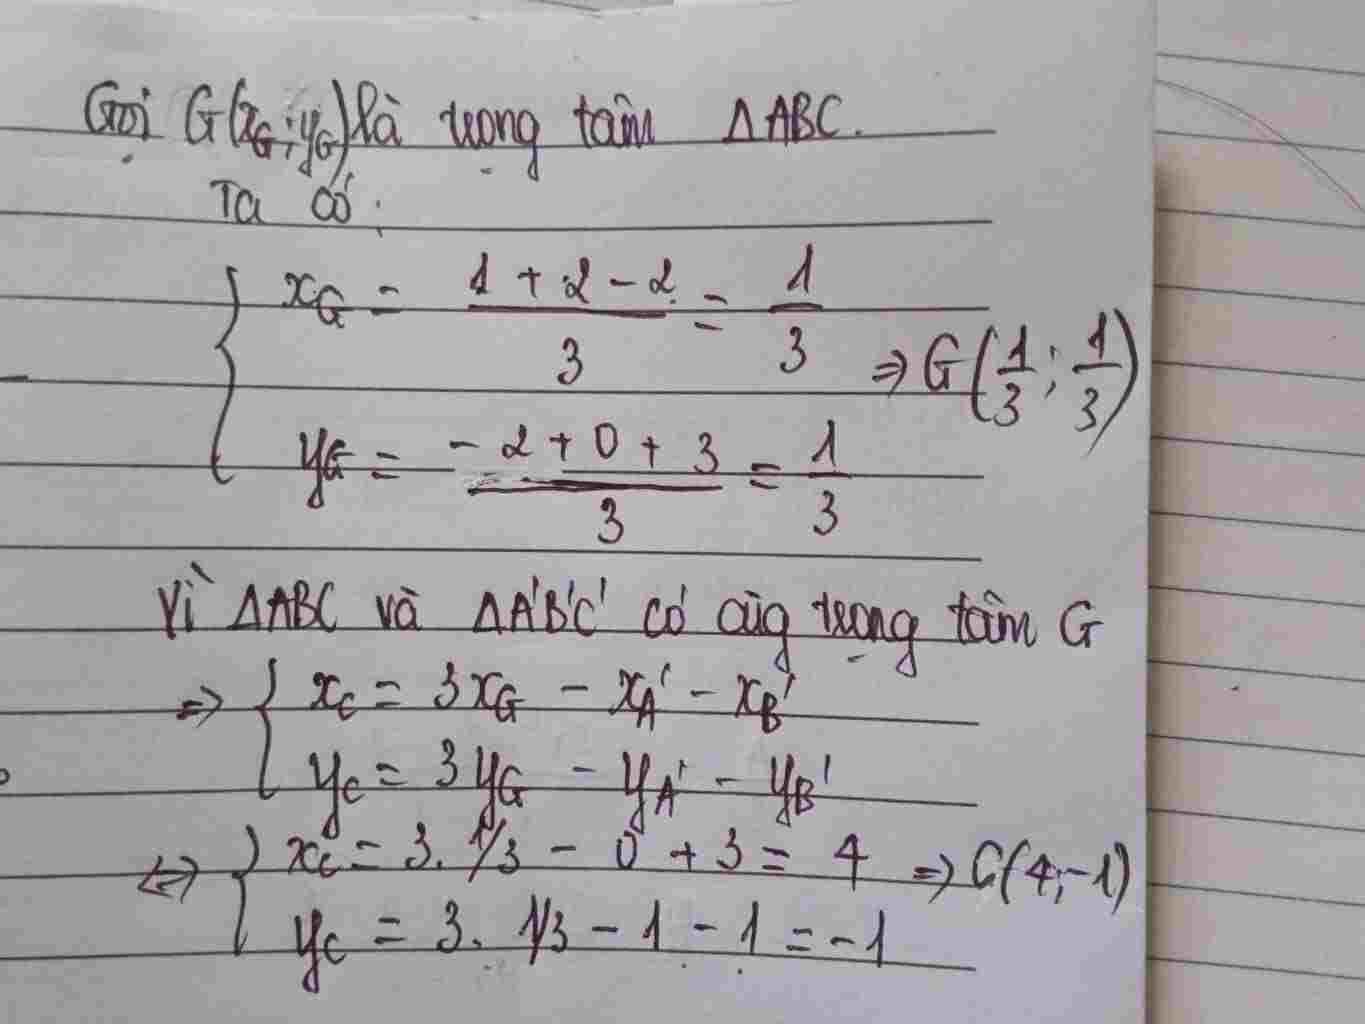 Gọi G(x_G; y_G) là trọng tâm ΔABC.
Ta có:
x_G = (1 + 2 - 2)/3 = 1/3
y_G = (-2 + 0 + 3)/3 = 1/3 ⇒ G(1/3; 1/3)
Vì ΔABC và ΔA'B'C' có cùg trọng tâm G
⇒ { x_C = 3x_G - x_A' - x_B'
y_C = 3y_G - y_A' - y_B'
⇔ { x_C = 3. 1/3 - 0 + 3 = 4 ⇒ C(4; -1)
y_C = 3. 1/3 - 1 - 1 = -1